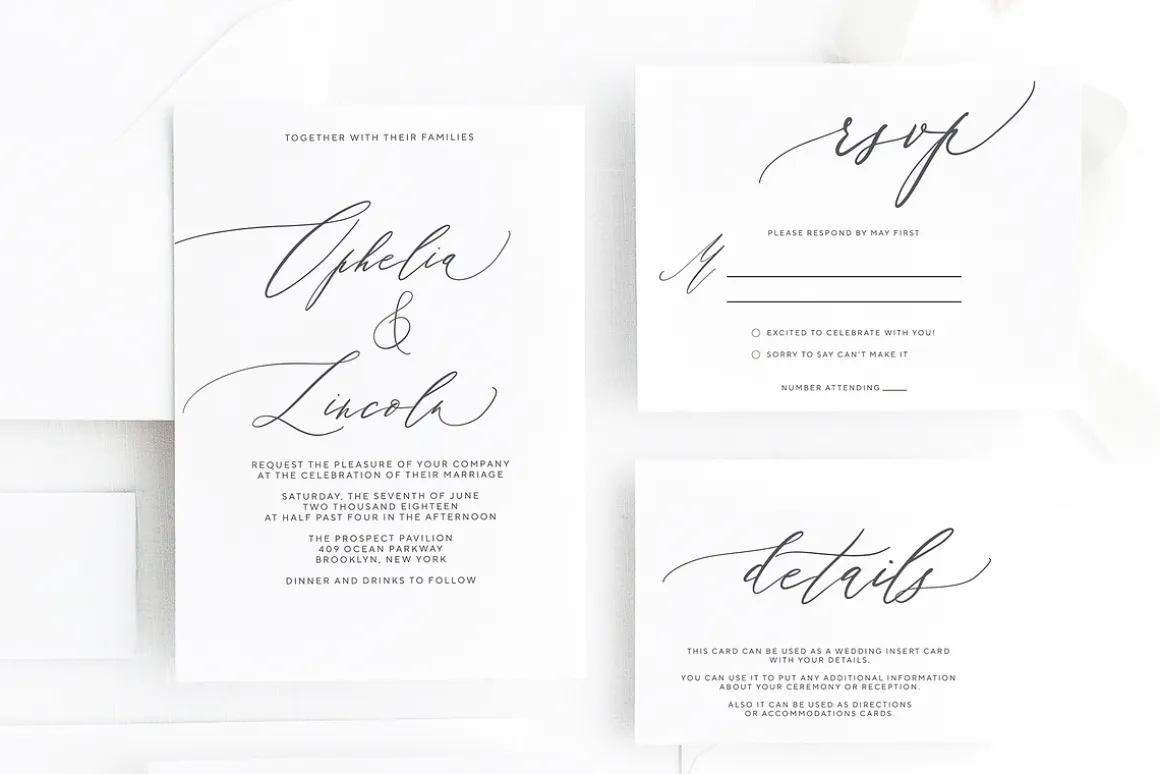 TOGETHER WITH THEIR FAMILIES
Ophelia
&
Lincoln
REQUEST THE PLEASURE OF YOUR COMPANY
AT THE CELEBRATION OF THEIR MARRIAGE
SATURDAY, THE SEVENTH OF JUNE
TWO THOUSAND EIGHTEEN
AT HALF PAST FOUR IN THE AFTERNOON
THE PROSPECT PAVILION
409 OCEAN PARKWAY
BROOKLYN, NEW YORK
DINNER AND DRINKS TO FOLLOW
rsvp
PLEASE RESPOND BY MAY FIRST
M
EXCITED TO CELEBRATE WITH YOU!
SORRY TO SAY CAN'T MAKE IT
NUMBER ATTENDING
details
THIS CARD CAN BE USED AS A WEDDING INSERT CARD
WITH YOUR DETAILS.
YOU CAN USE IT TO PUT ANY ADDITIONAL INFORMATION
ABOUT YOUR CEREMONY OR RECEPTION.
ALSO IT CAN BE USED AS DIRECTIONS
OR ACCOMMODATIONS CARDS.